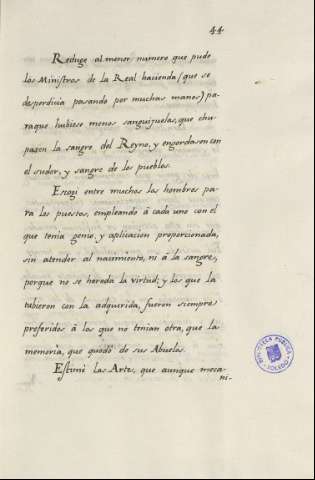 44
Reduge al menor numero que pude
los Ministros de la Real hacienda (que se
desperdicia pasando por muchas manos) pa-
raque hubiese menos sanguijuelas, que chu-
pasen la sangre del Reyno, y engordasen con
el sudor, y sangre de los pueblos.
Escogi entre muchos los hombres pa-
ra los puestos, empleando á cada uno con el
que tenia genio, y aplicacion proporcionada,
sin atender al nacimiento, ni á la sangre,
porque no se hereda la virtud; y los que la
tubieron con la adquirida, fueron siempre
preferidos á los que no tenian otra, que la
memoria, que quedó de sus Abuelos.
Estimé las Artes, que aunque meca-
ni-
BIBLIOTECA PUBLICA
TOLEDO